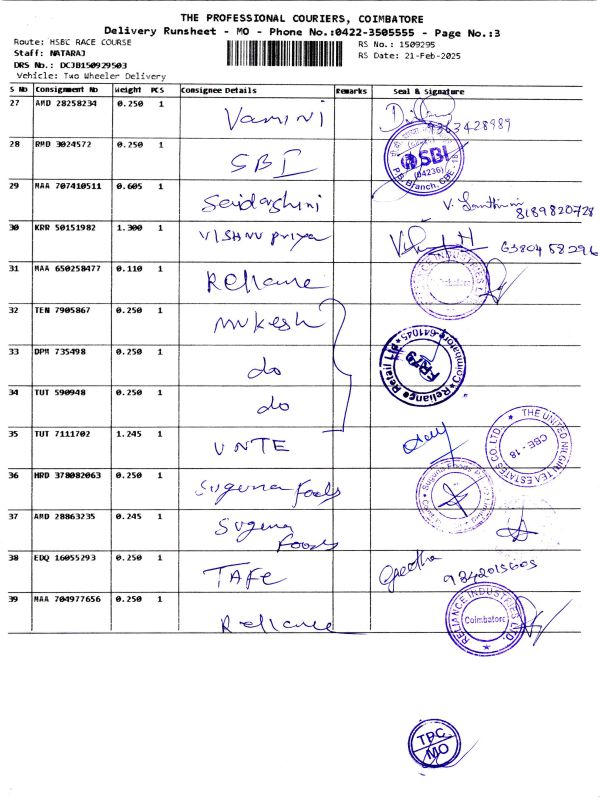 THE PROFESSIONAL COURIERS, COIMBATORE
Delivery Runsheet - MO - Phone No.:0422-3505555 - Page No.:3
Route: HSBC RACE COURSE
RS No.: 1509295
Staff: NATARAJ
RS Date: 21-Feb-2025
DRS No.: DCJB150929503
Vehicle: Two Wheeler Delivery
S No Consignment No Weight PCS Consignee Details Remarks Seal & Signature
27 AMD 28258234 0.250 1 Vamini 9363428989
28 RMD 3024572 0.250 1 SBI SBI (04236) P.B. Branch, CBE - 18
29 MAA 707410511 0.605 1 V. Santhini 8189820728
30 KRR 50151982 1.300 1 Vishnu priya 63804 58296
31 MAA 650258477 0.110 1 Reliance RELIANCE INDUSTRIES LTD. Coimbatore
32 TEN 7905867 0.250 1 mukesh
33 DPM 735498 0.250 1 do Reliance Retail Ltd Coimbatore 641045 FR79
34 TUT 590948 0.250 1 do
35 TUT 7111702 1.245 1 UNTE THE UNITED NILGIRI TEA ESTATES CO. LTD. CBE - 18
36 HRD 378082063 0.250 1 Suguna foods Suguna Foods
37 AMD 28863235 0.245 1 Suguna foods
38 EDQ 16055293 0.250 1 TAFE Geetha 9342015603
39 MAA 704977656 0.250 1 Reliance RELIANCE INDUSTRIES LTD. Coimbatore
TPC
MO